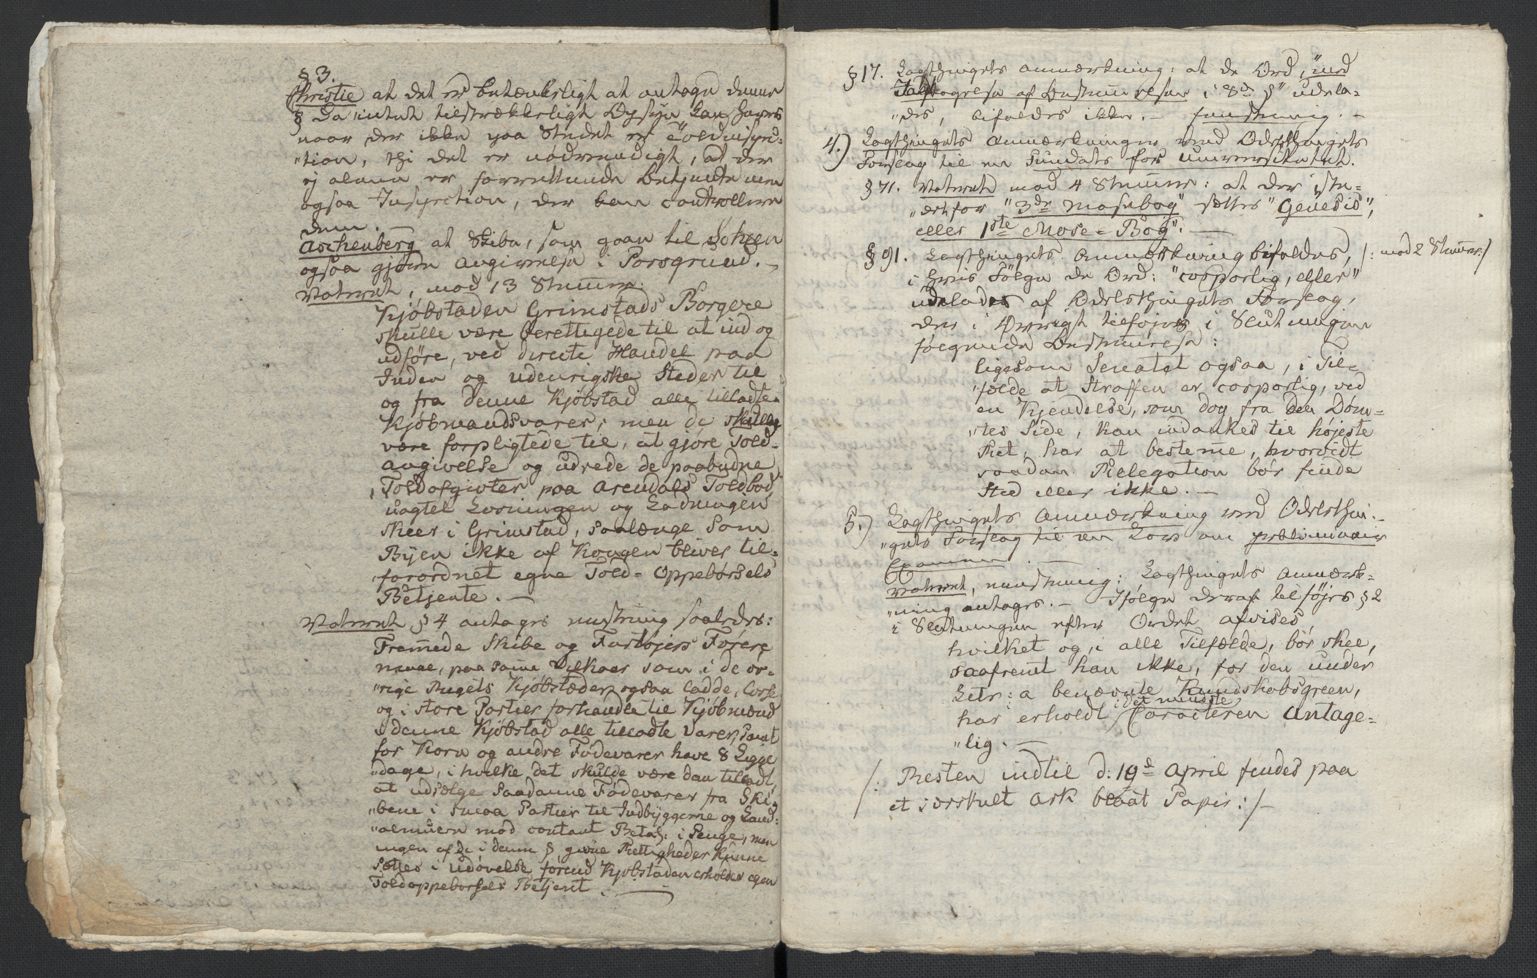 § 3.
Christie at det er betænkeligt at antage denne
§ da intet tilstrækkeligt Opsyn kan haves
naar der ikke paa Stedet er Toldinspec-
"tion, thi det er nødvendigt, at der
ej alene er forrettende Betjente men
ogsaa Inspection, der kan controllere
dem.
Aschenberg at Skibe, som gaae til
ogsaa gjøre Angivelse i Porsgrund. —
Voteret, mod 13 Stemmer:
Kjøbstaden Grimstads Borgere
skulle være berettigede til at ind og
udføre, ved directe Handel paa
Inden og udenrigske Steder til
og fra denne Kjøbstad alle tilladte
Kjøbmandsvarer; men de skulle
være forpligtede til, at gjøre Told-
angivelse og udrede de paabudne
Toldafgivter paa Arendals Toldbod
uagtet Losningen og Ladningen
skeer i Grimstad, saalænge som
Byen ikke af Kongen bliver til-
"forordnet egne Told-Oppebørsels
Betjente. —
Voteret § 4 antages eenstemmig saaledes:
Fremmede Skibe og Fartøjers Førere
maae, paa samme Vilkaar som i de øv-
"rige Rigets Kjøbstæder ogsaa ladde, losse
og i store Partier forhandle til Kjøbmænd
i denne Kjøbstad alle tilladte Varer, samt
for Korn og andre Fødevarer have 8 Ligge
"dage, i hvilke det skulde være dem tilladt
at udsælge saadanne Fødevarer fra Ski-
"bene i smaa Partier til Indbyggerne og Land-
"almuen mod contant Betal: i Penge, men
ingen af de i denne § givne Rettigheder kunne
sættes i Udøvelse førend Kjøbstaden erholder egen
Toldoppebørsels Betjent. —
§ 17. Lagthingets Anmærkning: at de Ord, "ved
af Bestemmelsen i 8de §" udela-
"des, bifaldes ikke. — Eenstemmig. —
4.) Lagthingets Anmærkninger ved Odelsthingets
Forslag til en Fundats for Universitetet.
§ 71. Voteret mod 4 Stemmer: at der iste-
"detfor "3die Mosebog" sættes "Genesis",
eller 1ste Mose-Bog". —
§ 91. Lagthingets Anmærkning bifaldes, /: mod 2 Stemmer :/
i hvis Følge de Ord: "corporlig, eller"
udelades af Odelsthingets Forslag,
der i Øvrigt tilføjes i Slutningen
følgende Bestemmelse:
ligesom Senatet ogsaa, i Til-
"fælde at Straffen er corporlig, ved
en Kjendelse, som dog fra den Døm-
"tes Side, kan indankes til højeste
Ret, har at bestemme, hvorvidt
saadan Relegation bør finde
Sted eller ikke. —
5.) Lagthingets Anmærkning ved Odelsthin-
"gets Forslag til en Lov om præliminair
Examen.
Voteret, eenstemmig: Lagthingets Anmærk-
"ning antages. — Ifølge deraf tilføjes § 2
i Slutningen efter Ordet afvises,
hvilket og, i alle Tilfælde, bør skee,
saafremt han ikke, for den under
Litr: a benævnte Kundskabsgreen,
har erholdt i det mindste Caracteren Antage-
"lig. —
/: Resten indtil d: 19de April findes paa
et særskilt Ark blaat Papir :/ —